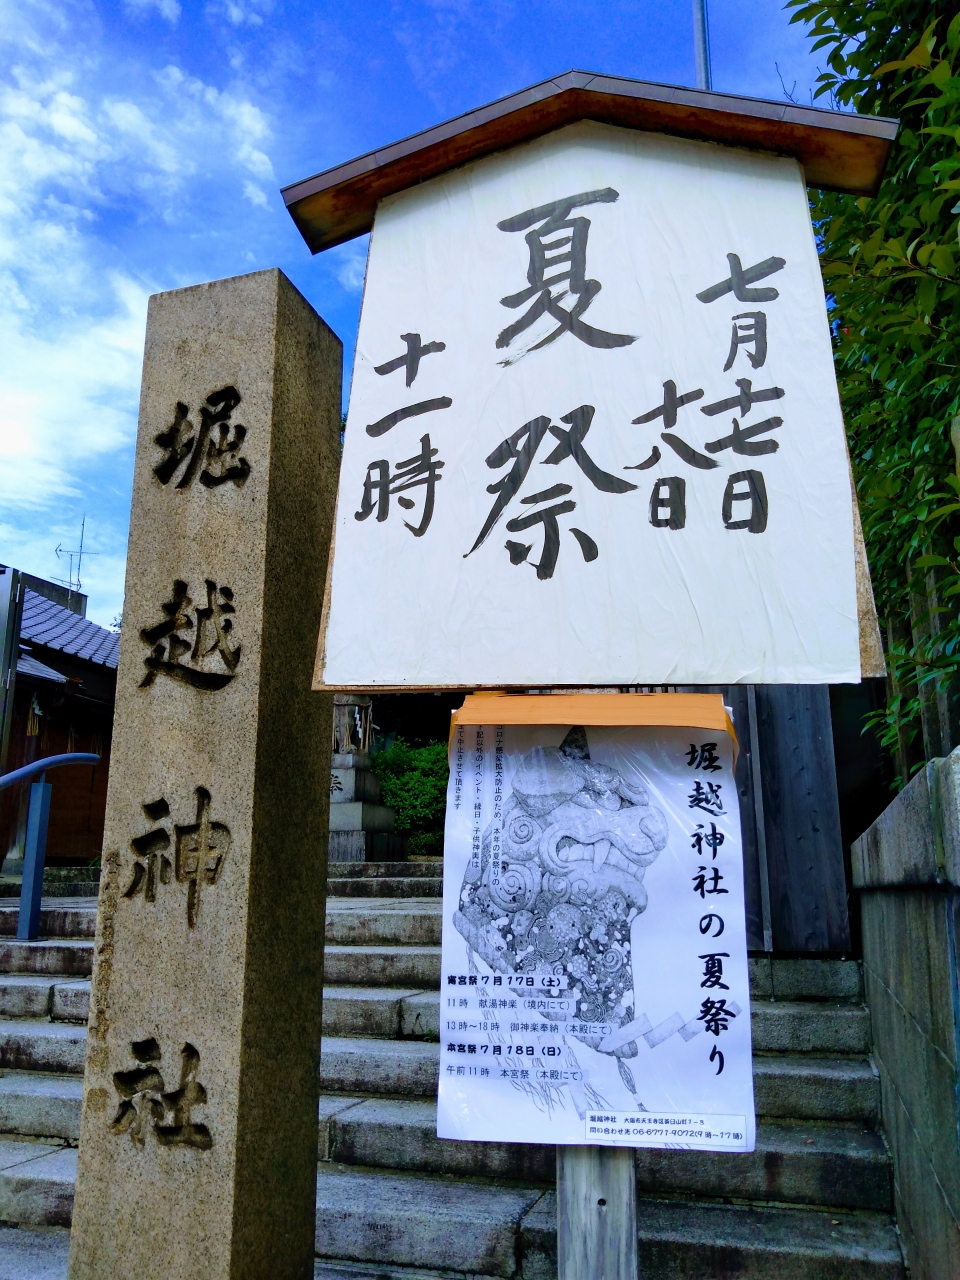 堀越神社
七月十七日
十八日
夏祭
十一時
堀越神社の夏祭り
コロナ感染拡大防止のため、本年の夏祭りの
下記以外のイベント・縁日・子供神輿は
全て中止させて頂きます
宵宮祭 7月17日（土）
11時 献湯神楽（境内にて）
13時～18時 御神楽奉納（本殿にて）
本宮祭 7月18日（日）
午前11時 本宮祭（本殿にて）
堀越神社 大阪市天王寺区茶臼山町1-8
問い合わせ先 06-6771-9072(9時～17時)